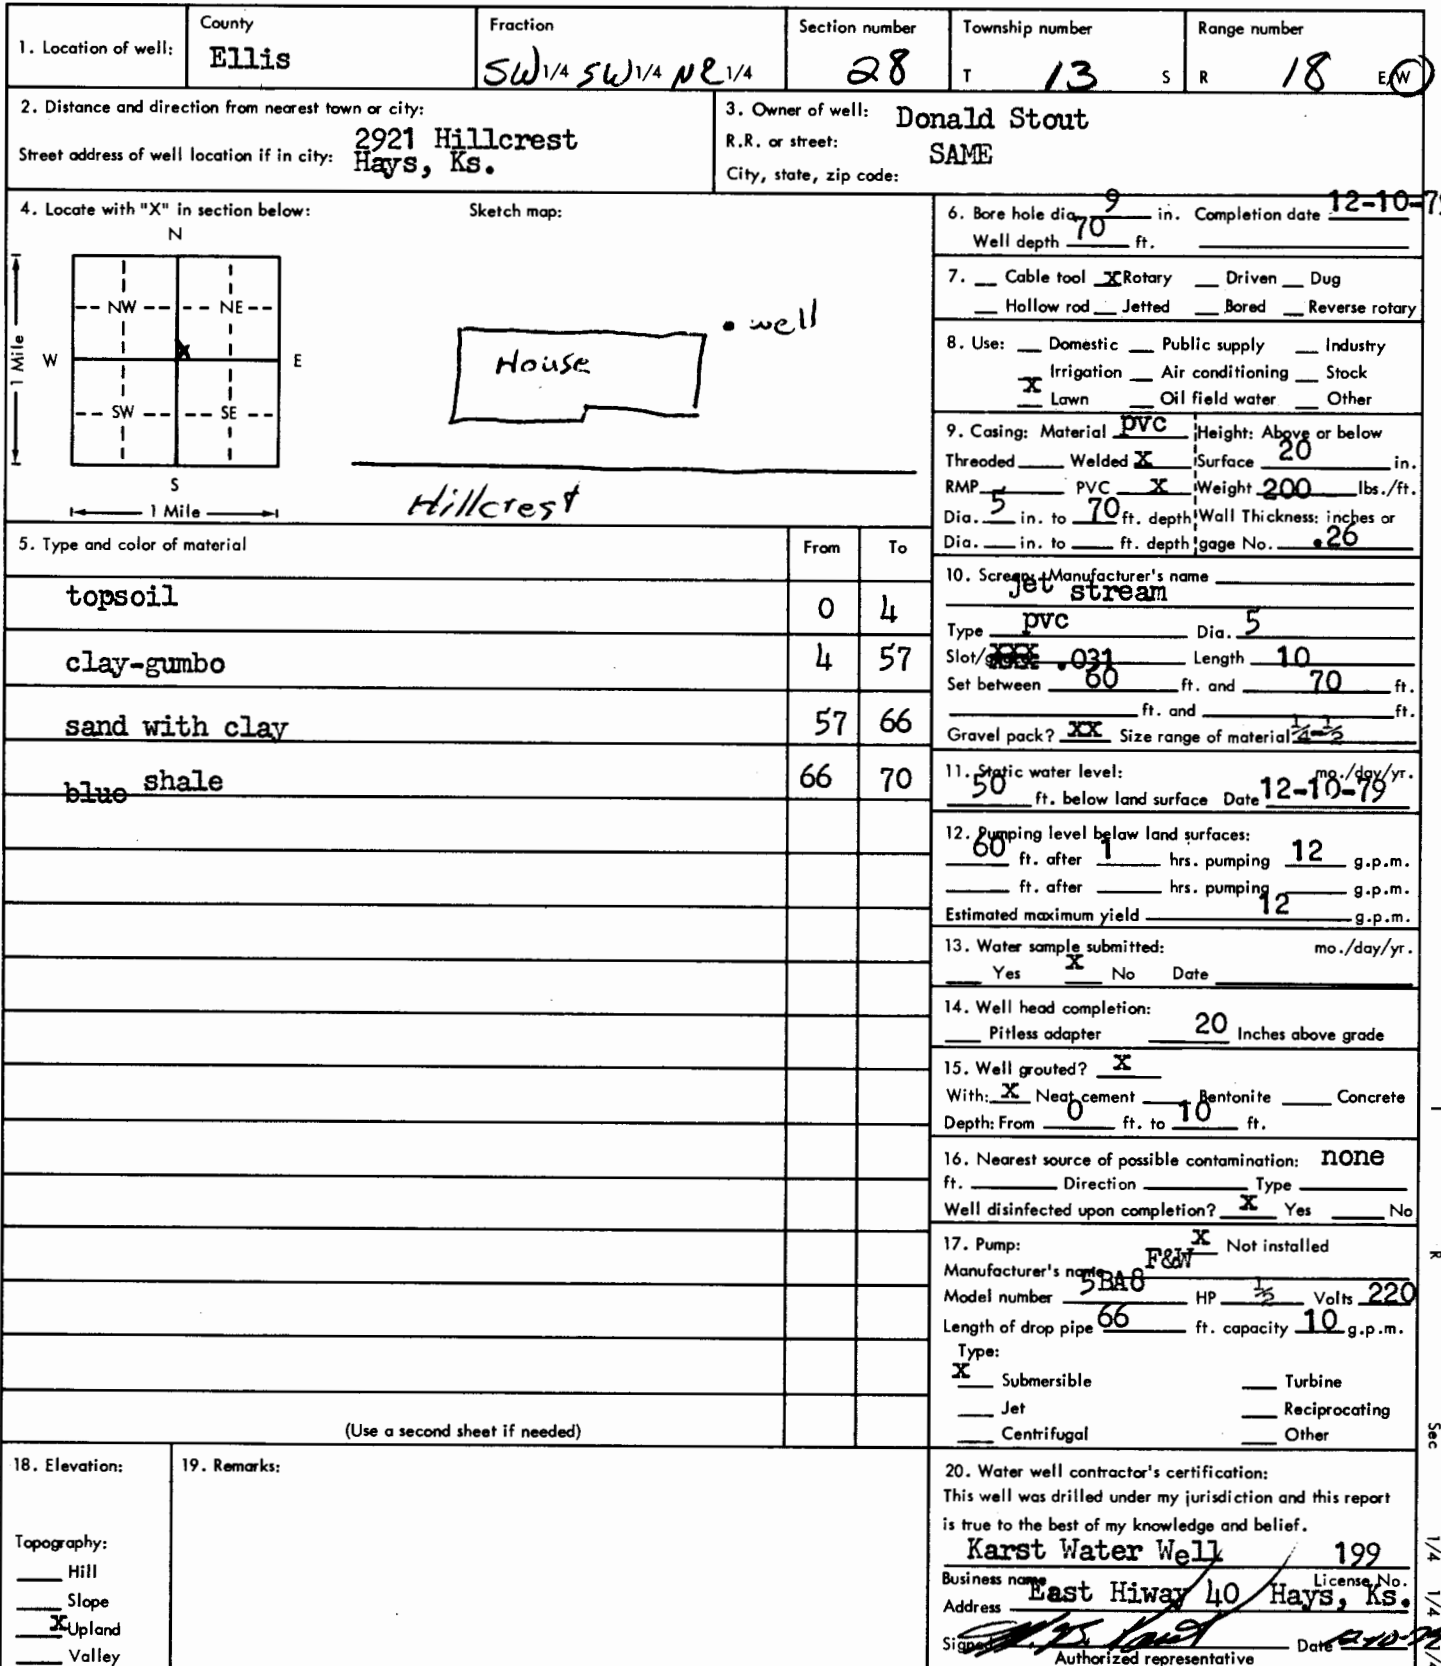 1. Location of well:
County
Ellis
Fraction
SW 1/4 SW 1/4 NE 1/4
Section number
28
Township number
T 13 S
Range number
R 18 E/W
2. Distance and direction from nearest town or city:
Street address of well location if in city: 2921 Hillcrest
Hays, Ks.
3. Owner of well: Donald Stout
R.R. or street: SAME
City, state, zip code:
4. Locate with "X" in section below:
N
NW NE
W X E
SW SE
S
1 Mile
1 Mile
Sketch map:
• well
House
Hillcrest
5. Type and color of material From To
topsoil 0 4
clay-gumbo 4 57
sand with clay 57 66
blue shale 66 70
(Use a second sheet if needed)
6. Bore hole dia. 9 in. Completion date 12-10-79
Well depth 70 ft.
7. __ Cable tool X Rotary __ Driven __ Dug
__ Hollow rod __ Jetted __ Bored __ Reverse rotary
8. Use: __ Domestic __ Public supply __ Industry
__ Irrigation __ Air conditioning __ Stock
X Lawn __ Oil field water __ Other
9. Casing: Material pvc Height: Above or below
Threoded __ Welded X Surface 20 in.
RMP __ PVC X Weight 200 lbs./ft.
Dia. 5 in. to 70 ft. depth Wall Thickness: inches or
Dia. __ in. to __ ft. depth gage No. .26
10. Screen: Manufacturer's name
jet stream
Type pvc Dia. 5
Slot/ .031 Length 10
Set between 60 ft. and 70 ft.
__ ft. and __ ft.
Gravel pack? XX Size range of material 1/4-1/2
11. Static water level: mo./day/yr.
50 ft. below land surface Date 12-10-79
12. Pumping level below land surfaces:
60 ft. after 1 hrs. pumping 12 g.p.m.
__ ft. after __ hrs. pumping __ g.p.m.
Estimated maximum yield 12 g.p.m.
13. Water sample submitted: mo./day/yr.
__ Yes X No Date
14. Well head completion:
__ Pitless adapter 20 Inches above grade
15. Well grouted? X
With: X Neat cement __ Bentonite __ Concrete
Depth: From 0 ft. to 10 ft.
16. Nearest source of possible contamination: none
ft. __ Direction __ Type __
Well disinfected upon completion? X Yes __ No
17. Pump: X Not installed
Manufacturer's name F&W
Model number 5BA8 HP 1/2 Volts 220
Length of drop pipe 66 ft. capacity 10 g.p.m.
Type:
X Submersible __ Turbine
__ Jet __ Reciprocating
__ Centrifugal __ Other
18. Elevation:
Topography:
__ Hill
__ Slope
X Upland
__ Valley
19. Remarks:
20. Water well contractor's certification:
This well was drilled under my jurisdiction and this report
is true to the best of my knowledge and belief.
Karst Water Well 199
Business name License No.
Address East Hiway 40 Hays, Ks.
Signed Karst Date 12-10-79
Authorized representative
R
Sec
1/4 1/4 1/4